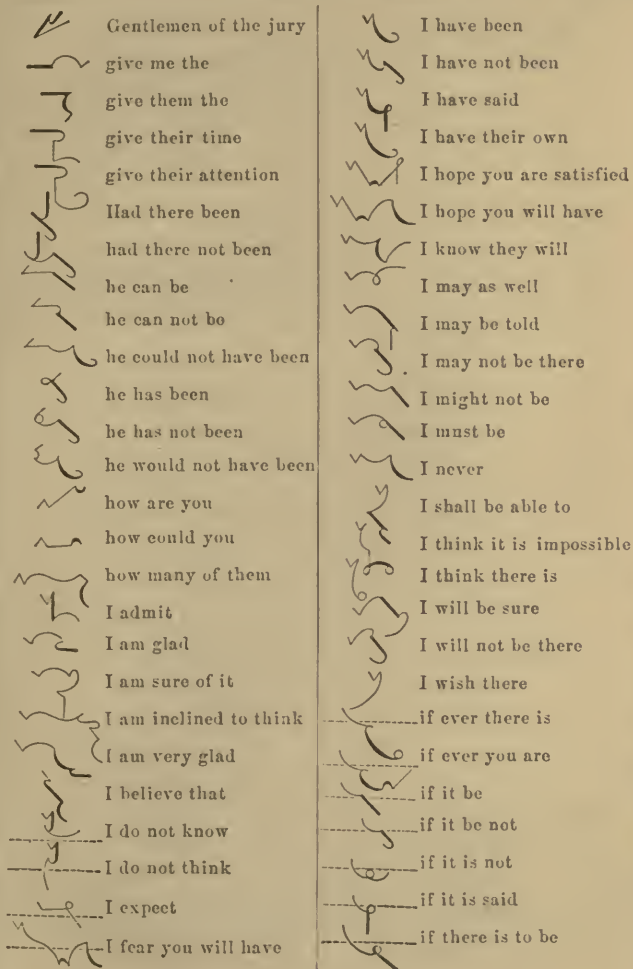 Gentlemen of the jury
give me the
give them the
give their time
give their attention
Had there been
had there not been
he can be
he can not be
he could not have been
he has been
he has not been
he would not have been
how are you
how could you
how many of them
I admit
I am glad
I am sure of it
I am inclined to think
I am very glad
I believe that
I do not know
I do not think
I expect
I fear you will have
I have been
I have not been
I have said
I have their own
I hope you are satisfied
I hope you will have
I know they will
I may as well
I may be told
I may not be there
I might not be
I must be
I never
I shall be able to
I think it is impossible
I think there is
I will be sure
I will not be there
I wish there
if ever there is
if ever you are
if it be
if it be not
if it is not
if it is said
if there is to be